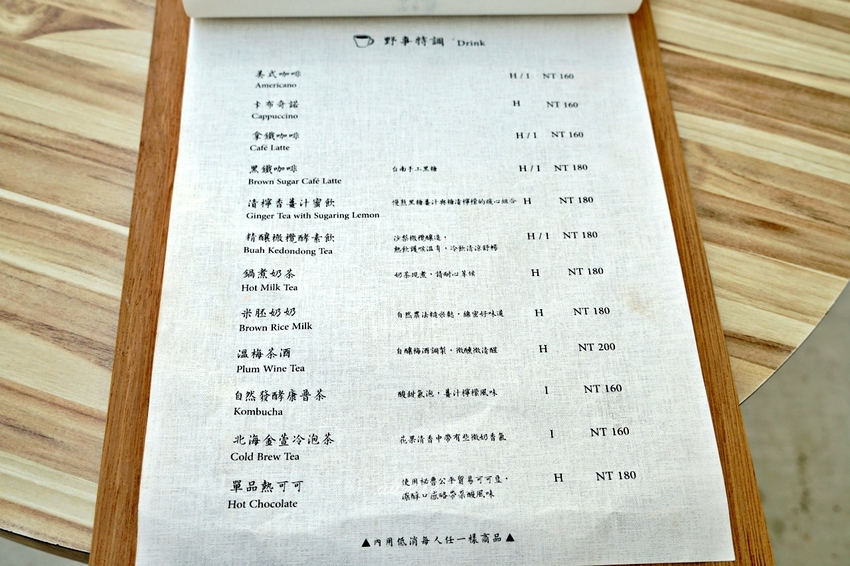 野事特調 Drink
美式咖啡 H / I NT 160
Americano
卡布奇諾 H NT 160
Cappuccino
拿鐵咖啡 H / I NT 160
Café Latte
黑鐵咖啡 台南手工黑糖 H / I NT 180
Brown Sugar Café Latte
清檸香薑汁蜜飲 慢熬黑糖薑汁與糖漬檸檬的暖心組合 H NT 180
Ginger Tea with Sugaring Lemon
精釀橄欖酵素飲 沙梨橄欖釀造， H / I NT 180
Buah Kedondong Tea 熱飲護喉溫胃，冷飲清涼舒暢
鍋煮奶茶 奶茶現煮，請耐心等候 H NT 180
Hot Milk Tea
米胚奶奶 自然農法糙米麩，綿密好味道 H NT 180
Brown Rice Milk
溫梅茶酒 自釀梅酒調製，微醺微清醒 H NT 200
Plum Wine Tea
自然發酵康普茶 酸甜氣泡，薑汁檸檬風味 I NT 160
Kombucha
北海金萱冷泡茶 花果清香中帶有些微奶香氣 I NT 160
Cold Brew Tea
單品熱可可 使用祕魯公平貿易可可豆， H NT 180
Hot Chocolate 濃醇口感略帶果酸風味
▲內用低消每人任一樣商品▲